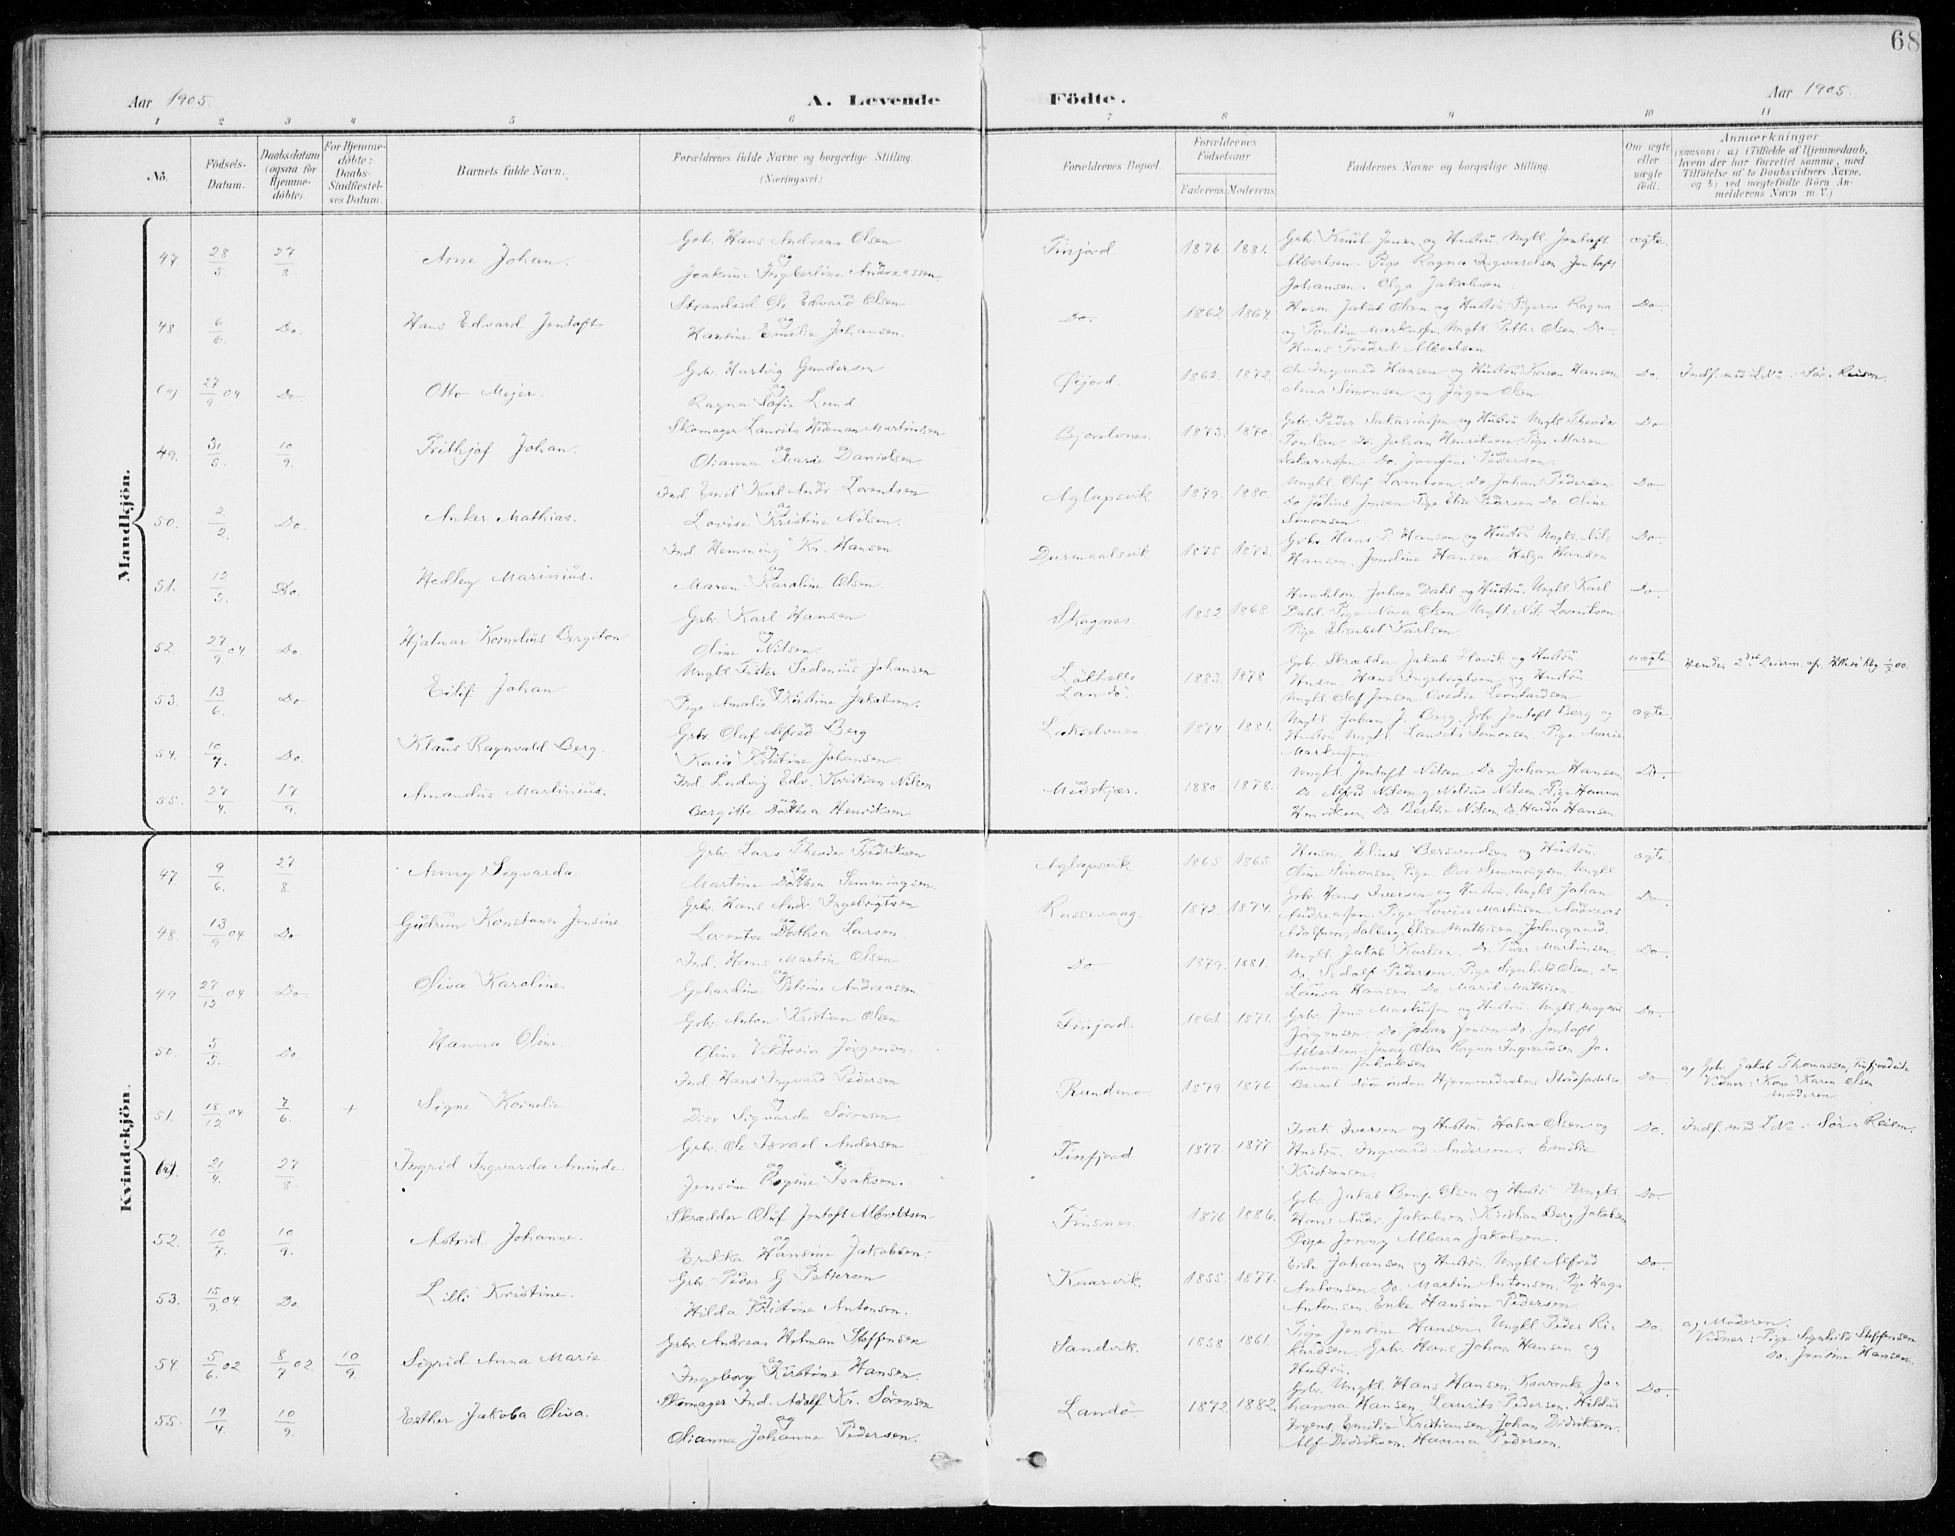 68
Aar 1905.
A. Levende
Födte.
Aar 1905.
1 2 3 4 5 6 7 8 9 10 11
No.
Födsels-Datum.
Daabsdatum (ogsaa for Hjemme-döbte).
For Hjemme-döbte: Daabs-Stadfæstel-ses Datum.
Barnets fulde Navn.
Forældrenes fulde Navne og borgerlige Stilling.
(Næringsvei.)
Forældrenes Bopæl.
Forældrenes Födselsaar
Faderens. Moderens.
Faddernes Navne og borgerlige Stilling.
Om ægte eller uægte födt.
Anmærkninger
(saasom: a) i Tilfælde af Hjemmedaab,
hvem der har forrettet samme, med
Tilföielse af to Daabsvidners Navne,
og b) ved uægtefödte Börn An-
melderens Navn m. V.)
Mandkjön.
47 28/5 27/8 Arne Johan. Grb. Hans Andreas Olsen og Joakime Ingebertine Andreassen Finfjord 1876. 1881. Grb. Knut Jensen og Hustru. Ungkl Jentoft
Albertsen. Pige Ragna Ingvardsen Jentoft
Johansen. Olga Jakobsen. ægte
48 6/6 Do. Hans Edvard Jentoft Strandsid Ole Edvard Olsen og Hansine Emelie Johansen. Do 1862 1864. Husm Jakob Olsen og Hustru. Pigerne Ragna
og Markussen. Ungkl Petter Olsen Do
Hans Fredrik Albertsen Do
27/9 04 Do Otto Mejer. Grb. Hartvig Gundersen og Ragna Sofie Lund Øijord. 1862. 1872. Ole Ingvard Hansen og Hustru Karen Hansen
Anna Simonsen og Jörgen Olsen Do. Indf. med L No i Sör-Reisen.
49. 31/5 10/9. Frithjof Johan. Skomager Laurits Hedeman Martinsen og Olianna Marie Danielsen. Bjorelvnes. 1873. 1870. Grb. Peder Sakariassen og Hustru Ungkl Theodor
Do. Johan Henriksen Pige Maren
Sakariassen Do. Josefine Pedersen. Do
50. 2/2. Do. Anker Mathias. Ind. Emil Karl Andr. Lorentsen og Lovise Kristine Nilsen. Aglapsvik 1879. 1880. Ungkl Olaf Lorentsen, Do Johan Pedersen
Do Julius Jensen Pige Elise Pedersen Do Oline
Simonsen. Do
51. 12/5. Do. Hedley Marinius. Ind. Hemming Kr. Hansen og Maren Karoline Olsen Durmaalsvik 1875. 1873. Grb. Hans P Hansen og Hustru Ungkl. Nils
Hansen. Jendine Hansen. Helga Hansen Do
52. 27/9 04. Do Hjalmar Kornelius Bergiton Grb. Karl Hansen og Oline Nilsen. Skognes. 1852 1868. Johan Dahl og Hustru. Ungkl Karl
Dahl. Pige Nora Olsen Ungkl Nils Lorentsen
Pige Elisabet Karlsen. Do
53. 13/6. Do Eilif Johan Ungkl Peter Sedenius Johansen og Pige Amalie Kristine Jakobsen. Landö 1883. 1878 Grb. Skrædder Jakob Hovik og Hustru
Husm. Hans Ingebrigtsen og Hustru
Ungkl Olaf Jensen Ovedia Leonhardsen uægte Hendes 2det Leierm.
54. 10/7. Do. Klaus Ragnvald Berg. Grb. Olaf Alfred Berg og Kaia Kristine Johansen. Lakselvnes 1874 1881. Ungkl Johan J. Berg. Grb. Jentoft Berg og
Hustru Ungkl Laurits Simonsen. Pige Marie
Markussen ægte.
55. 27/4. 17/9. Amandus Martinius. Ind Ludvig Edv. Kristian Nilsen og Bergitte Dorthea Henriksen. Medskjær. 1880. 1878. Ungkl Jentoft Nilsen Do Johan Hansen.
Do. Alfred Nilsen og Nelius Nilsen. Pige Hanna
Henriksen, Do. Berthe Nilsen, Do Halda Hansen. Do
Kvindekjön.
47 9/6. 27/8. Anny Sigvarda. Grb. Lars Theodor Fredriksen og Martine Dorthea Simmingsen. Aglapsvik 1865 1865. Husm. Elias Berswendsen og Hustru.
Oline Simonsen, Pige Ove Simmingsen. Ungkl ægte.
48. 13/9 04. Do Gudrun Konstanse Jensine Grb. Hans Andr Ingebrigtsen og Lorentse Dorthea Larsen Russevaag. 1872. 1874. Grb Hans Iversen og Hustru Ungkl Johan
Andreassen. Pige Lovise Martinsen. Andreas
Adolfsen, Solberg. Elise Mathisen Johnsgaard. Do.
49 27/12 04 Do. Siva Karoline Ind. Hans Martin Olsen og Gerhardine Petrine Andreassen Do 1879. 1881. Ungkl. Jakob Karlsen. Do. Peder Martinsen.
Do. Sedolf Pedersen. Pige Signhild Olsen. Do
Laura Hansen. Do Marit Mathisen. Do
50. 5/5. Do Hanna Oline. Grb. Anton Kristian Olsen og Oline Viktoria Jörgensen. Finfjord. 1861. 1871. Grb. Jens Markussen og Hustru Ungkl Magnus
Jörgensen. Do Johan Jensen Do. Jentoft
Albertsen. Jenny Olsen Ragna Ingvardsen Jo-
hanna Jakobsen Do
51. 18/12 04 7/6. + Signe Kornelie Ind Hans Ingvard Pedersen og Dise Sigvarda Sörensen. Rundmo 1879 1876 Barnet död inden Hjemmedaabens Stadfæstelse Do a, Grb. Jakob Thomassen, Finfjordeide
Vidner: Kone Karen Olsen
Moderen.
21/4. 27/8 Ingrid Ingvarda Aminde. Grb. Ole Israel Andersen og Jensine Regine Isaksen. Finfjord 1877 1877 Isak Iversen og Hustru. Halvor Olsen og
Hustru. Ingvard Andersen. Emilie
Kristiansen. Do. Indf. med L No i Sör-Reisen.
52. 10/7. 10/9. Astrid Johanne. Skrædder Oluf Jentoft Albrektsen og Erikka Hansine Jakobsen. Finsnes. 1876 1886. Grb. Jakob Benj. Olsen og Hustru Ungkl.
Hans Andr. Jakobsen. Kristian Berg Jakobsen
Pige Jenny Albara Jakobsen. Do
53. 15/9 04 Do. Lilli Kristine. Grb. Peder G. Pettersen og Hilda Kristine Antonsen. Kaarvik. 1855. 1877. Johansen og Hustru Ungkl Alfred
Antonsen. Do. Martin Antonsen. Pige Haga
Antonsen. Enke Hansine Pedersen. Do
54. 5/6. 02 8/7 02. 10/9. Sigrid Anna Marie Grb. Andreas Holman Steffensen og Ingeborg Kirstine Hansen. Sandvik. 1858 1861. Pige Jensine Hansen. Ungkl Peder Ri-
kardsen. Grb. Hans Johan Hansen og
Hustru. Do. a, Moderen.
Vidner: Pige Signhild Steffensen
Do. Jensine Hansen.
55. 19/4. 10/9. Esther Jakoba Oliva. Skomager Ind. Adolf Kr. Sörensen og Olianna Johanne Pedersen. Landö 1872 1882. Grb. Ungkl. Hans Hansen. Jo-
hanna Hansen. Laurits Pedersen. Hildus
Irgens, Emilie Kristiansen Johan Didriksen.
Alf Didriksen. Hanna Pedersen. Do.